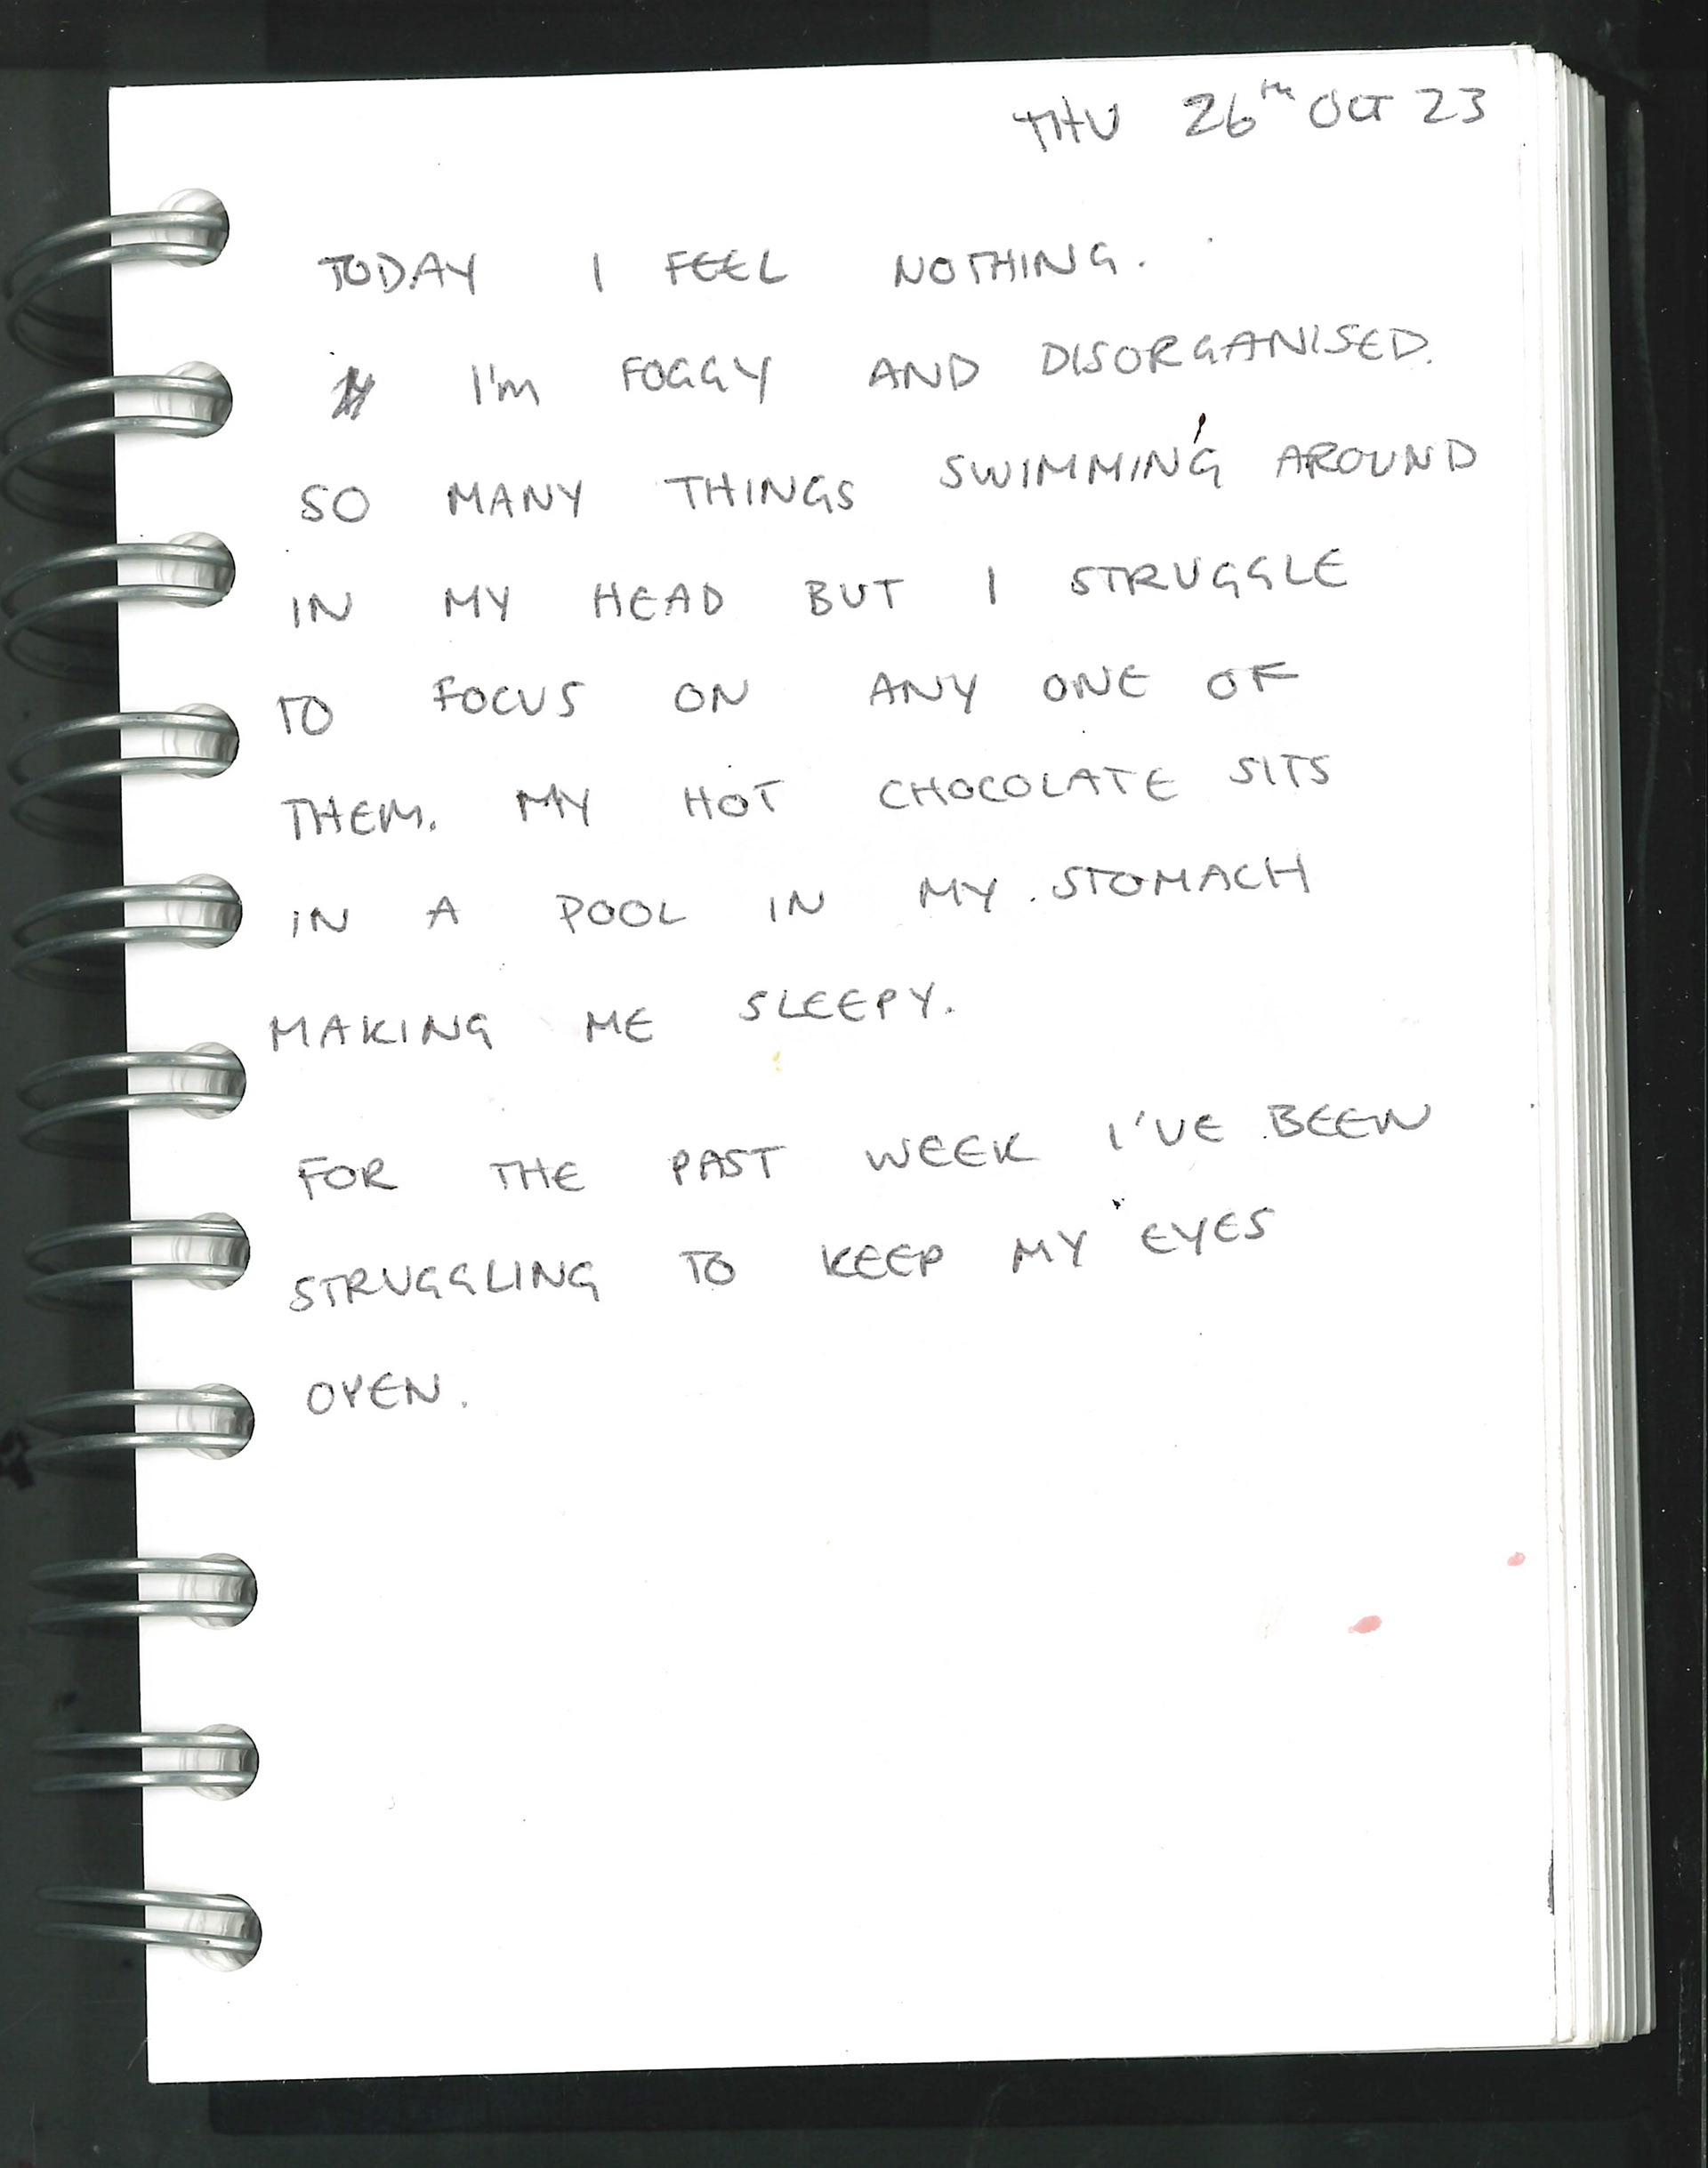 THU 26th OCT 23
TODAY I FEEL NOTHING.
I'm FOGGY AND DISORGANISED.
SO MANY THINGS SWIMMING AROUND
IN MY HEAD BUT I STRUGGLE
TO FOCUS ON ANY ONE OF
THEM. MY HOT CHOCOLATE SITS
IN A POOL IN MY STOMACH
MAKING ME SLEEPY.
FOR THE PAST WEEK I'VE BEEN
STRUGGLING TO KEEP MY EYES
OPEN.